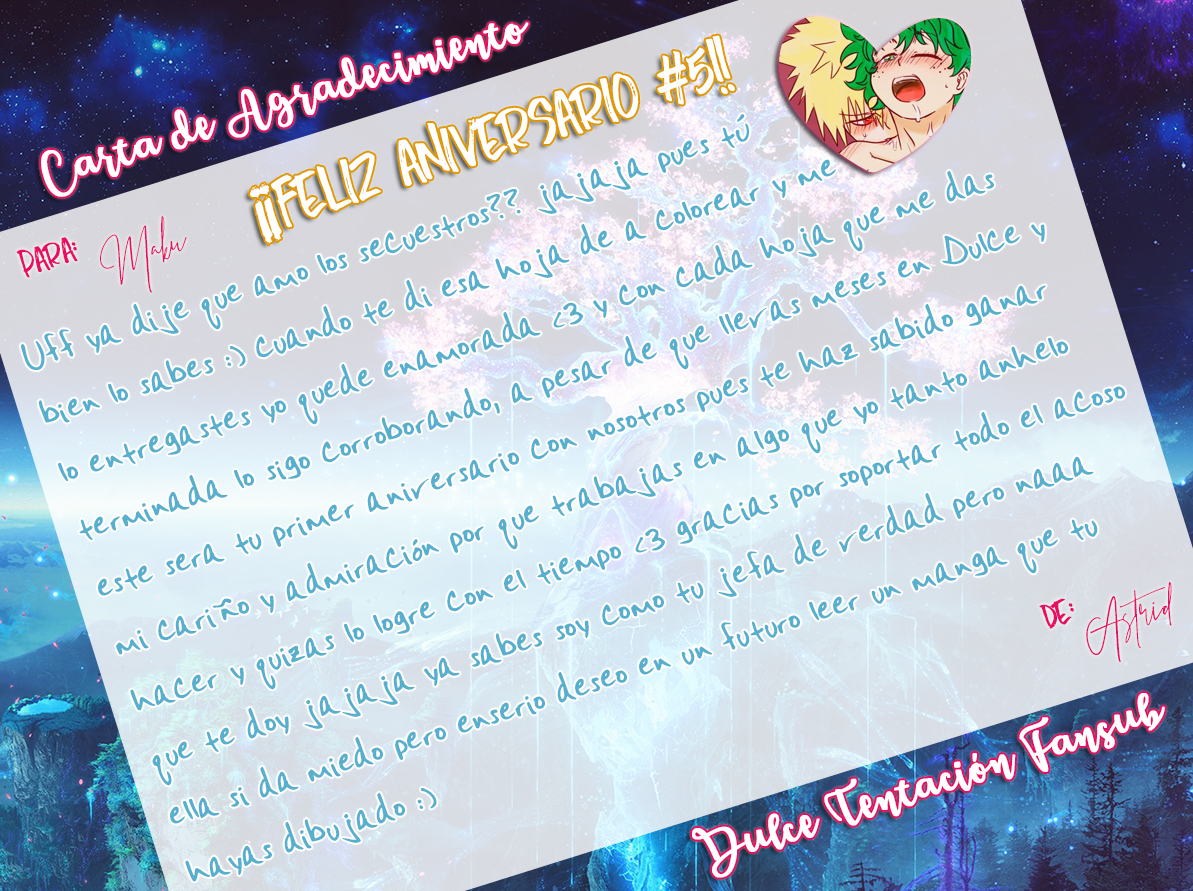 Carta de Agradecimiento
¡¡FELIZ ANIVERSARIO #5!!
PARA: Maku
Uff ya dije que amo los secuestros?? jajaja pues tú
bien lo sabes :) Cuando te di esa hoja de a Colorear y me
lo entregastes yo quede enamorada <3 y Con Cada hoja que me das
terminada lo sigo Corroborando, a pesar de que lleras meses en Dulce y
este sera tu primer aniversario Con nosotros pues te haz sabido ganar
mi Cariño y admiración por que trabajas en algo que yo tanto anhelo
hacer y quizas lo logre Con el tiempo <3 gracias por soportar todo el acoso
que te doy jajaja ya sabes soy Como tu jefa de verdad pero naaa
ella si da miedo pero enserio deseo en un futuro leer un manga que tu
hayas dibujado :)
DE: Astrid
Dulce Tentación Fansub